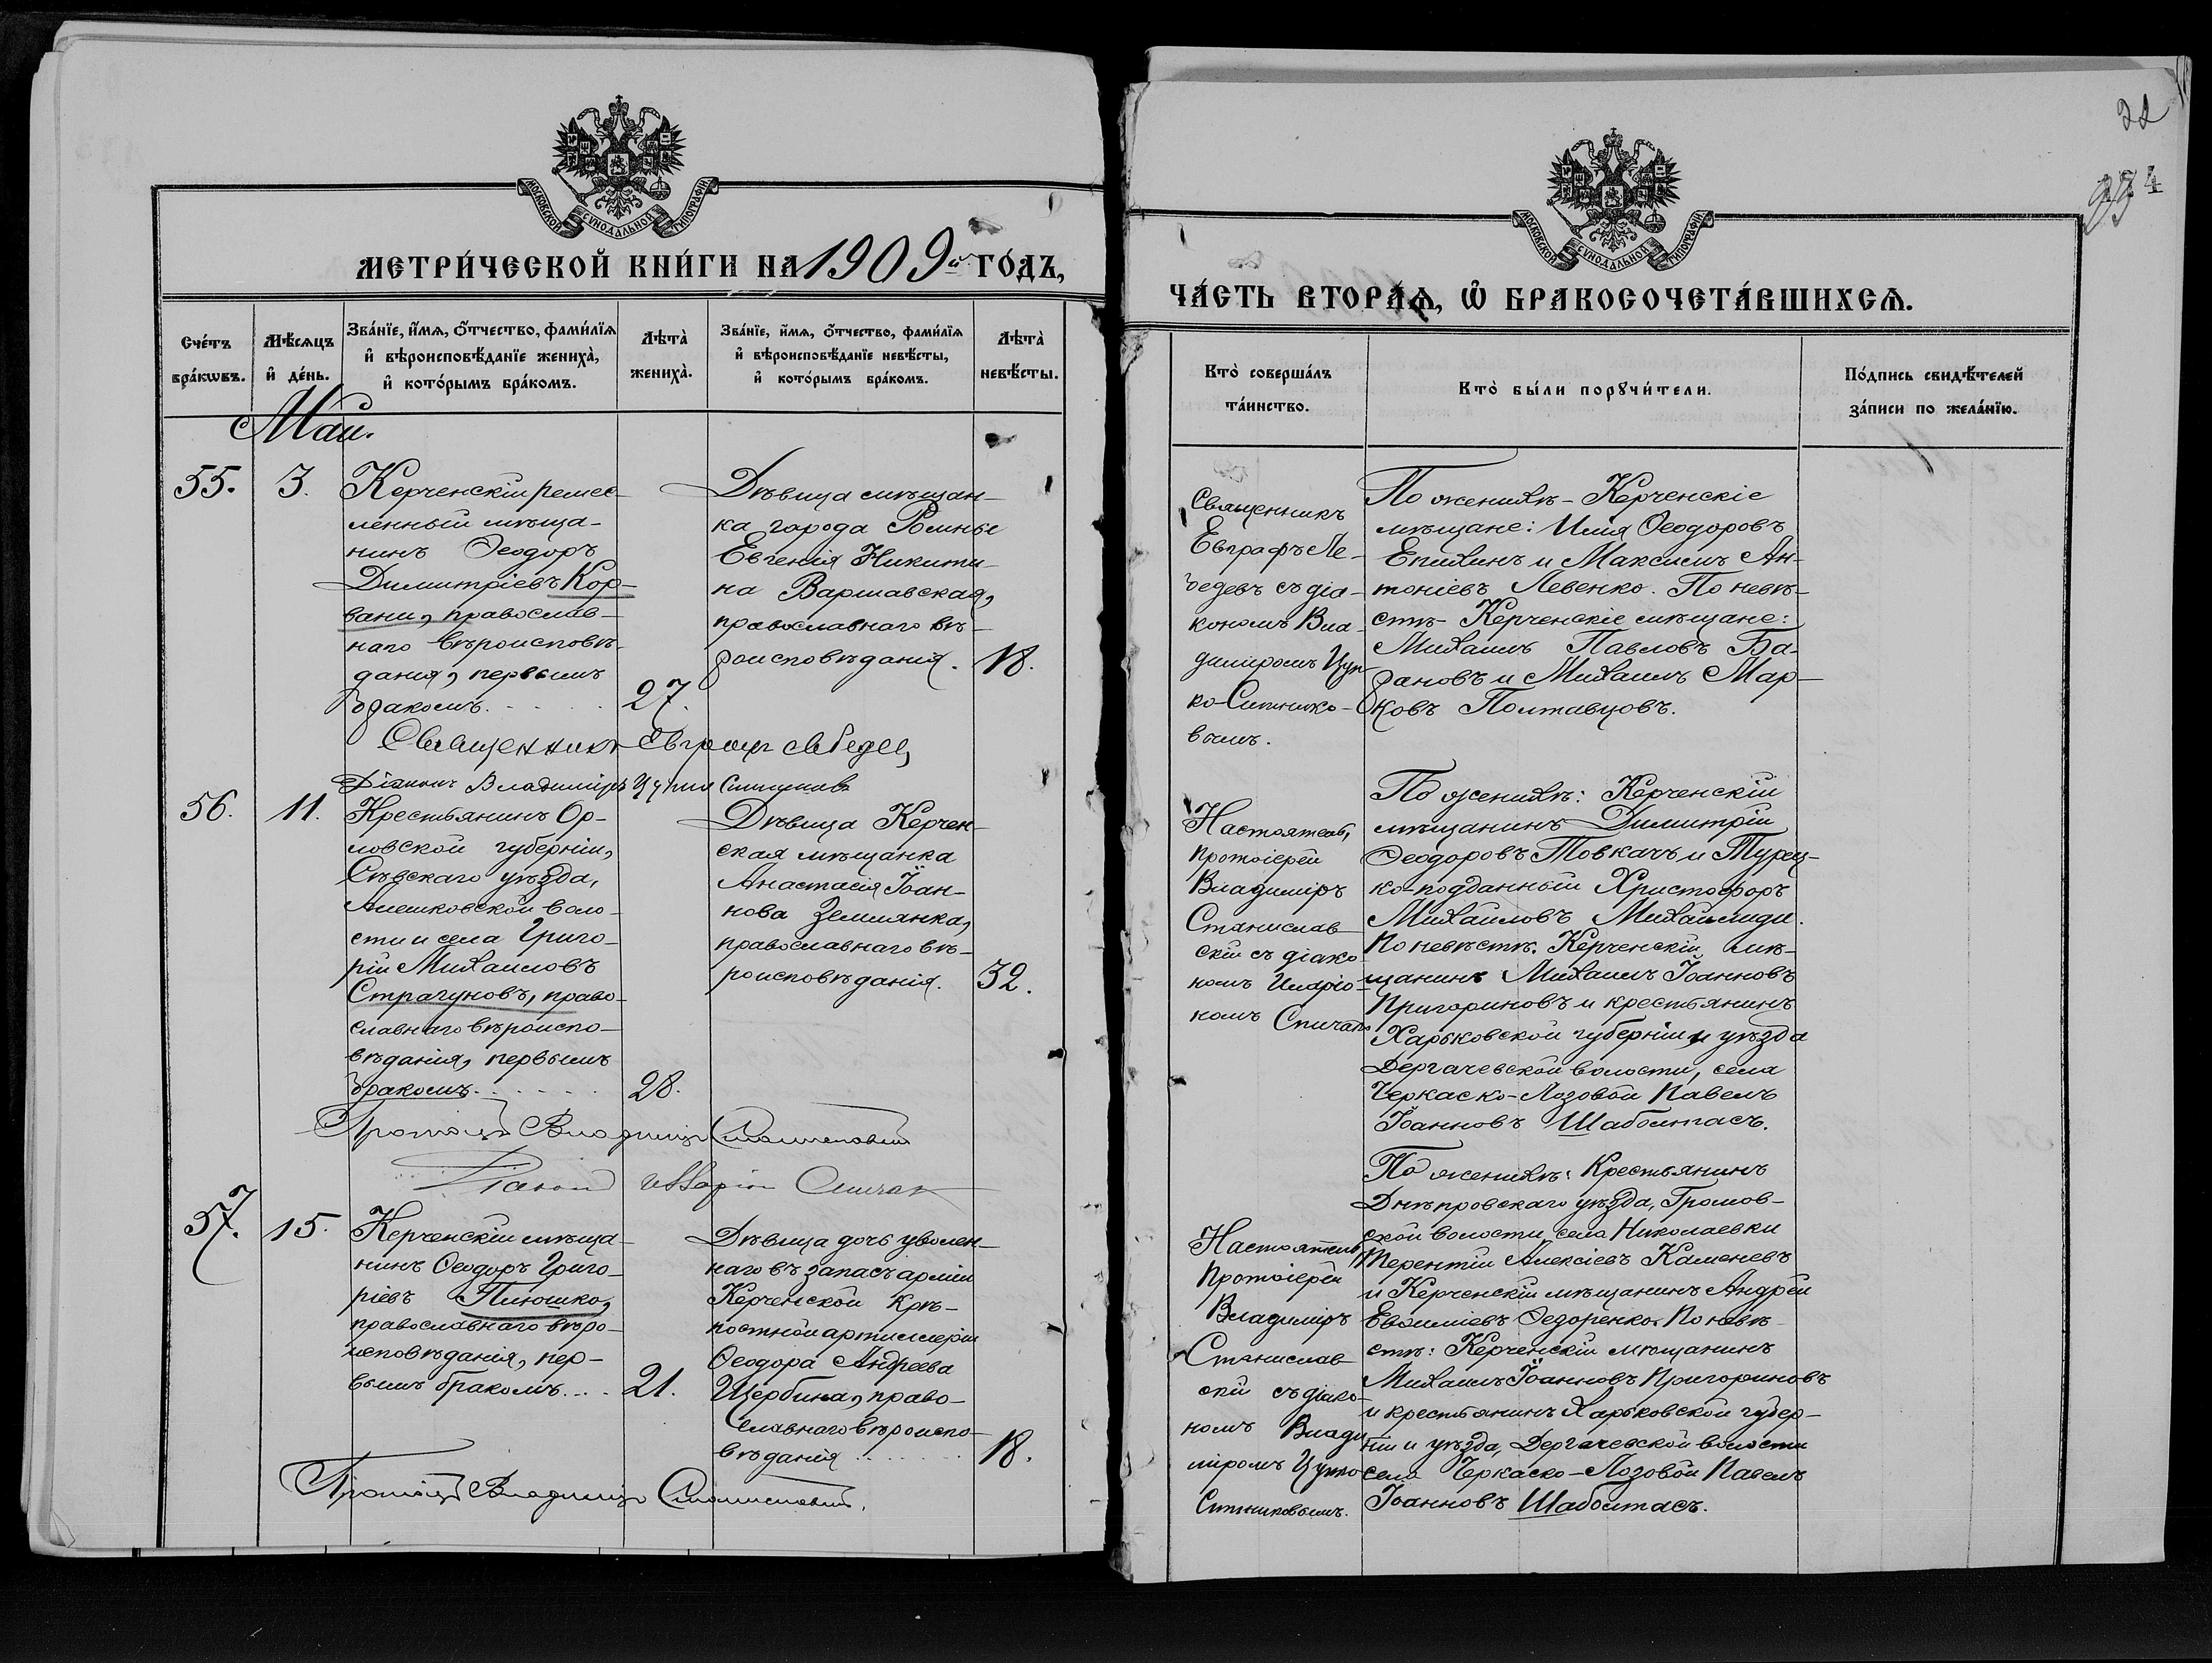 МОСКОВСКОЙ СѴНОДАЛЬНОЙ ТИПОГРАФІИ
МЕТРИ́ЧЕСКОЙ КНИ́ГИ НА 1909й ГО́ДЪ,
Сче́тъ бра́кѡвъ.
Мѣ́сѧцъ и҆ де́нь.
Зва́нїе, и҆́мѧ, ѻ҆́тчество, фами́лїѧ и҆ вѣроисповѣ́данїе жениха̀, и҆ кото́рымъ бра́комъ.
Лѣта̀ жениха̀.
Зва́нїе, и҆́мѧ, ѻ҆́тчество, фами́лїѧ и҆ вѣроисповѣ́данїе невѣ́сты, и҆ кото́рымъ бра́комъ.
Лѣта̀ невѣ́сты.
Май.
55.
3.
Керченскій ремес-
ленный мѣща-
нинъ Ѳеодоръ
Димитріевъ Кор-
вани, православ-
наго вѣроисповѣ-
данія, первымъ
бракомъ.
27.
Дѣвица мѣщан-
ка города Ромны
Евгенія Никити-
на Варшавская,
православнаго вѣ-
роисповѣданія.
18.
Священникъ Евграфъ Лебедев
Діаконъ Владиміръ Цупко Ситников
56.
11.
Крестьянинъ Ор-
ловской губерніи,
Сѣвскаго уѣзда,
Алешковской воло-
сти и села Григо-
рій Михаиловъ
Страгуновъ, право-
славнаго вѣроиспо-
вѣданія, первымъ
бракомъ.
28.
Дѣвица Керчен-
ская мѣщанка
Анастасія Іоан-
нова Землянка,
православнаго вѣ-
роисповѣданія.
32.
Протоіерей Владиміръ Станиславскій
Діакон Иларіон Спичак
57.
15.
Керченскій мѣща-
нинъ Ѳеодоръ Григо-
ріевъ Плюшко,
православнаго вѣро-
исповѣданія, пер-
вымъ бракомъ....
21.
Дѣвица дочь уволен-
наго въ запасъ арміи
Керченской крѣ-
постной артиллеріи
Ѳеодора Андреева
Щербина, право-
славнаго вѣроиспо-
вѣданія
18.
Протоіерей Владиміръ Станиславскій.
22
4
МОСКОВСКОЙ СѴНОДАЛЬНОЙ ТИПОГРАФІИ
ЧА́СТЬ ВТОРА́Ѧ, Ѽ БРАКОСОЧЕТА́ВШИХСѦ.
Кто̀ соверша́лъ та́инство.
Кто̀ бы́ли порꙋчи́тели.
По́дпись свидѣ́телей за́писи по жела́нїю.
Священникъ
Евграфъ Ле-
бедевъ съ діа-
кономъ Вла-
диміромъ Цуп-
ко-Ситнико-
вымъ.
По женихѣ - Керченскіе
мѣщане: Илія Ѳеодоровъ
Епихинъ и Максимъ Ан-
тоніевъ Левенко. По невѣ-
стѣ - Керченскіе мѣщане:
Михаилъ Павловъ Ба-
рановъ и Михаилъ Мар-
ковъ Полтавцовъ.
Настоятель,
протоіерей
Владиміръ
Станислав-
скій съ діако-
номъ Иларіо-
номъ Спичак
По женихѣ: Керченскій
мѣщанинъ Димитрій
Ѳеодоровъ Товкачъ и Турец-
ко-подданный Христофоръ
Михаиловъ Михаилиди.
По невѣстѣ: Керченскій мѣ-
щанинъ Михаилъ Іоанновъ
Пригориновъ и крестьянинъ
Харьковской губерніи и уѣзда
Дергачевской волости, села
Черкаско-Лозовой Павелъ
Іоанновъ Шаболтасъ.
Настоятель,
Протоіерей
Владиміръ
Станислав-
скій съ діако-
номъ Влади-
міромъ Цупко
Ситниковымъ.
По женихѣ: Крестьянинъ
Днѣпровскаго уѣзда, Громов-
ской волости, села Николаевки
Терентій Алексіевъ Каменевъ
и Керченскій мѣщанинъ Андрей
Евѳиміевъ Ѳедоренко. По невѣ-
стѣ: Керченскій мѣщанинъ
Михаилъ Іоанновъ Пригориновъ
и крестьянинъ Харьковской губер-
ніи и уѣзда, Дергачевской волости
села Черкаско-Лозовой Павелъ
Іоанновъ Шаболтасъ.